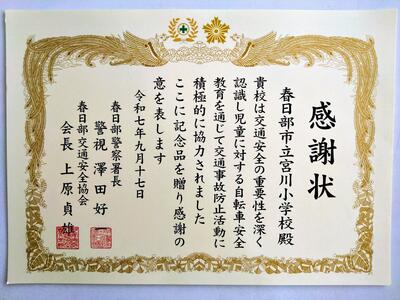 感謝状
春日部市立宮川小学校殿
貴校は交通安全の重要性を深く
認識し児童に対する自転車安全
教育を通じて交通事故防止活動に
積極的に協力されました
ここに記念品を贈り感謝の
意を表します
令和七年九月十七日
春日部警察署長
警視 澤田好
春日部交通安全協会
会長 上原貞雄